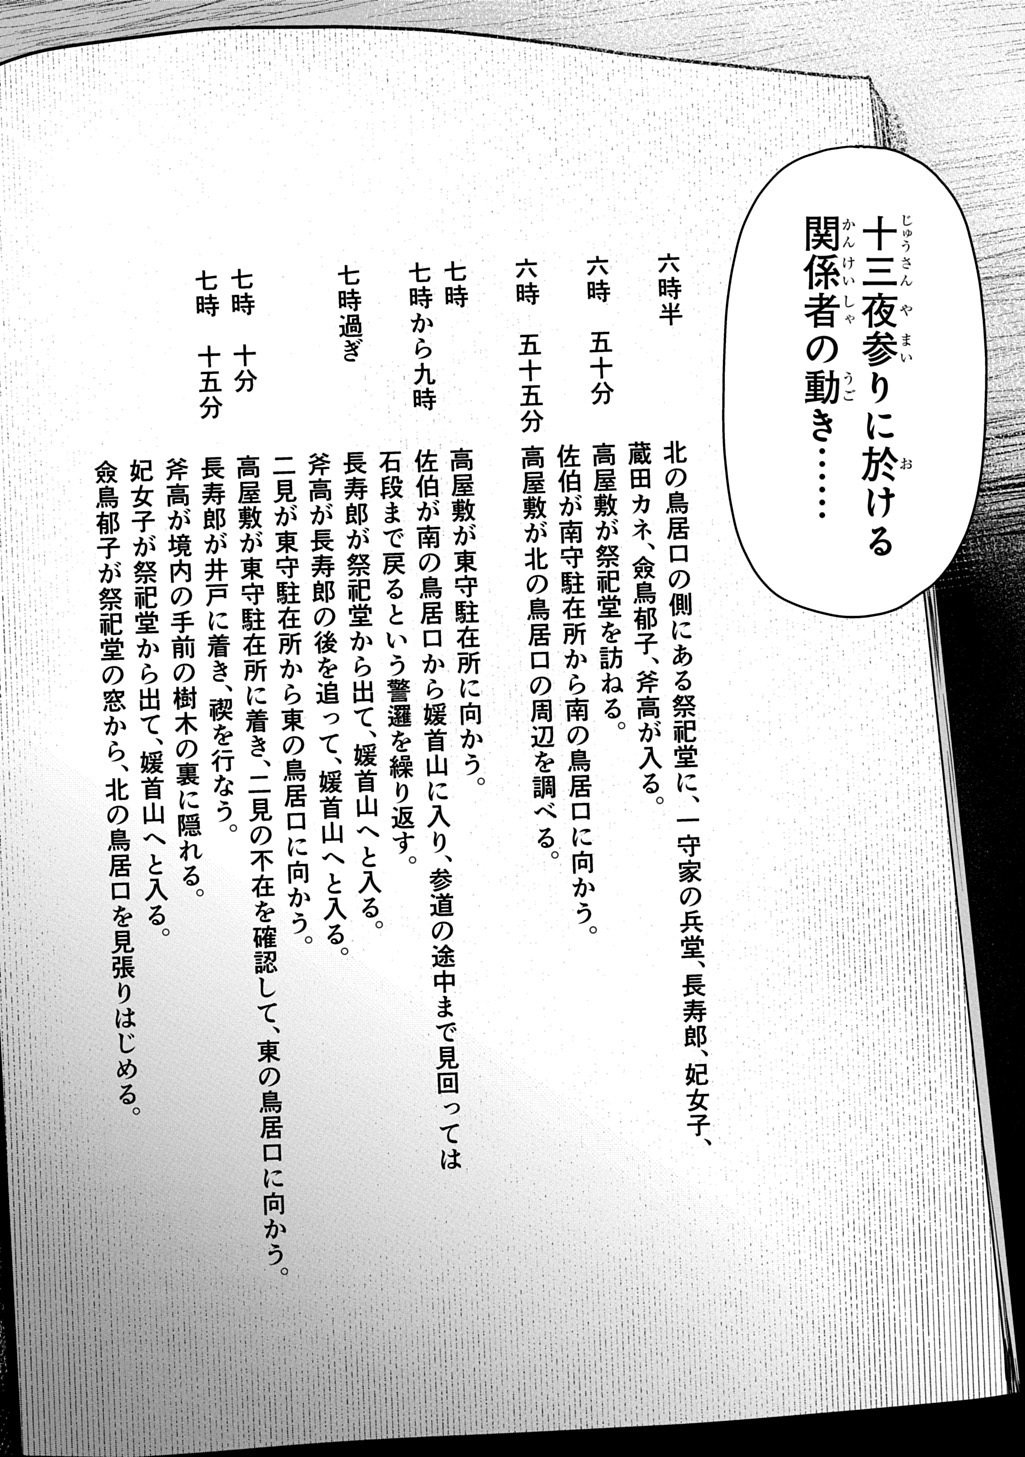 十三夜参りに於ける
関係者の動き……
六時半 北の鳥居口の側にある祭祀堂に、一守家の兵堂、長寿郎、妃女子、
蔵田カネ、僉鳥郁子、斧高が入る。
六時 五十分 高屋敷が祭祀堂を訪ねる。
佐伯が南守駐在所から南の鳥居口に向かう。
六時 五十五分 高屋敷が北の鳥居口の周辺を調べる。
七時 高屋敷が東守駐在所に向かう。
七時から九時 佐伯が南の鳥居口から媛首山に入り、参道の途中まで見回っては
石段まで戻るという警邏を繰り返す。
七時過ぎ 長寿郎が祭祀堂から出て、媛首山へと入る。
斧高が長寿郎の後を追って、媛首山へと入る。
二見が東守駐在所から東の鳥居口に向かう。
七時 十分 高屋敷が東守駐在所に着き、二見の不在を確認して、東の鳥居口に向かう。
七時 十五分 長寿郎が井戸に着き、禊を行なう。
斧高が境内の手前の樹木の裏に隠れる。
妃女子が祭祀堂から出て、媛首山へと入る。
僉鳥郁子が祭祀堂の窓から、北の鳥居口を見張りはじめる。